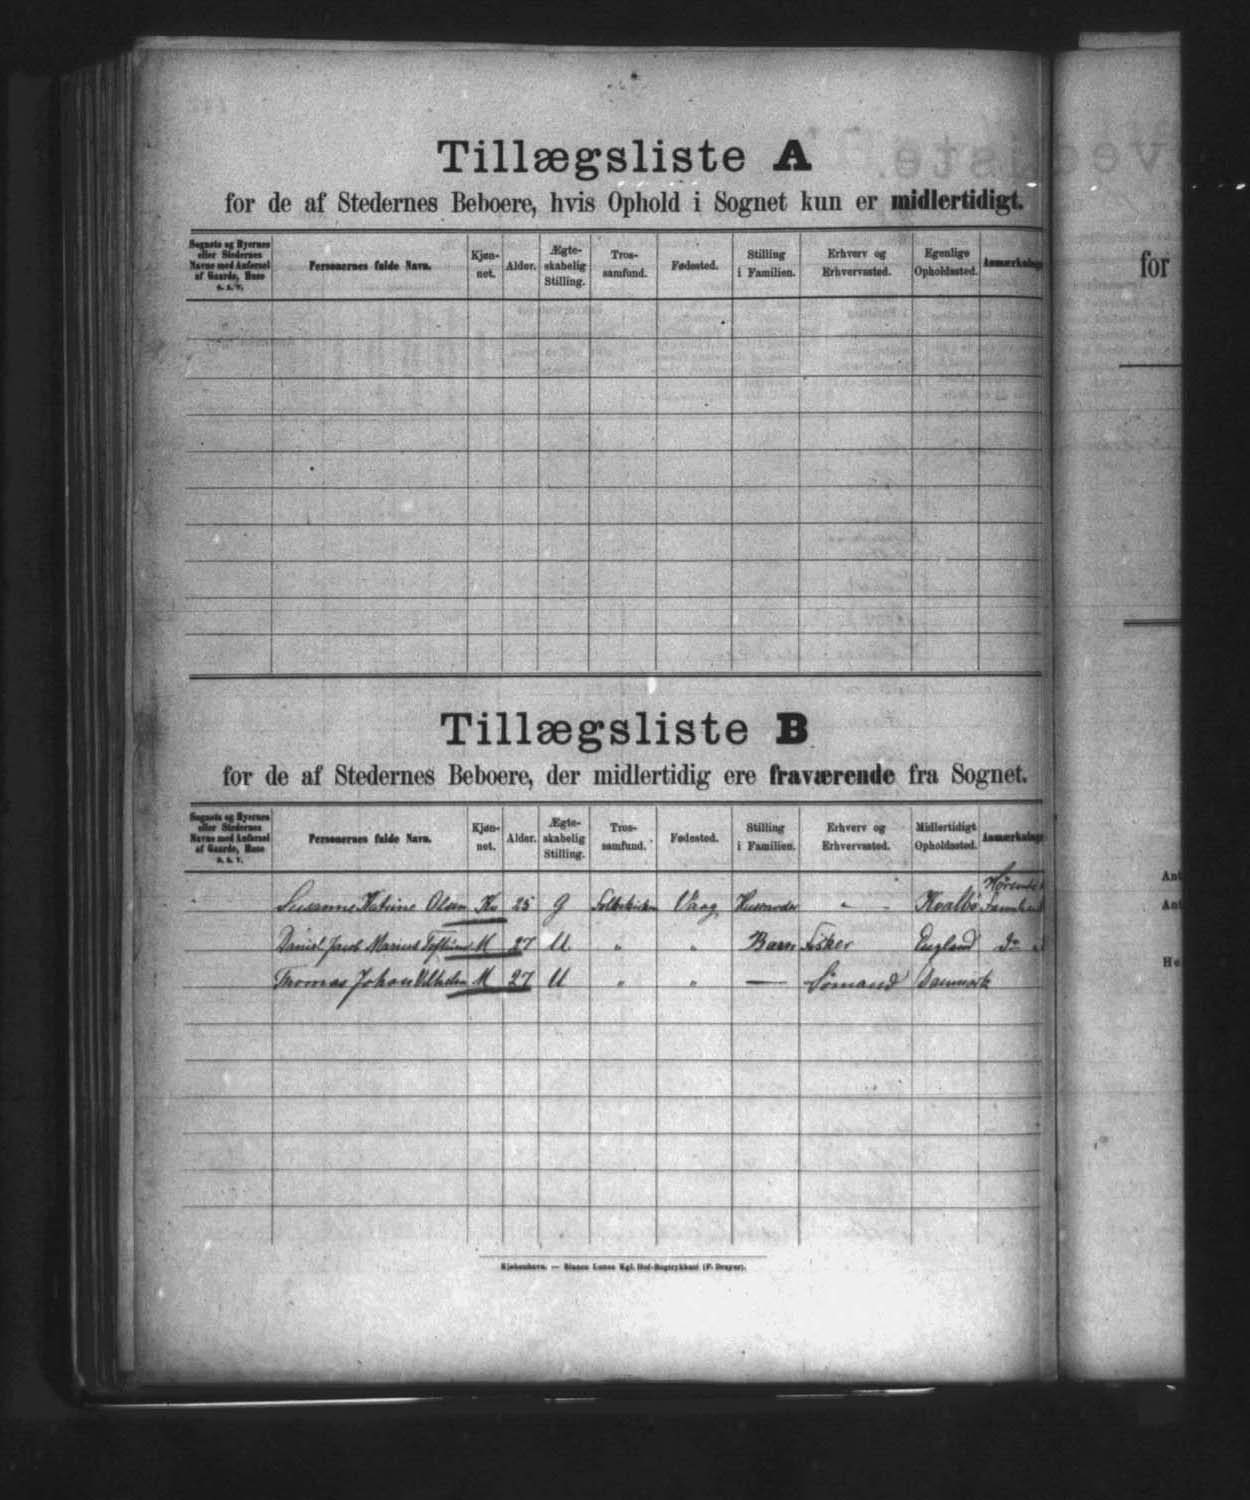 Tillægsliste A
for de af Stedernes Beboere, hvis Ophold i Sognet kun er midlertidigt.
Sognets og Byernes eller Stedernes Navne med Anførsel af Gaarde, Huse o. s. v. Personernes fulde Navn. Kjøn- net. Alder. Ægte- skabelig Stilling. Tros- samfund. Fødested. Stilling i Familien. Erhverv og Erhvervssted. Egenlige Opholdssted. Anmærkninge
for
Tillægsliste B
for de af Stedernes Beboere, der midlertidig ere fraværende fra Sognet.
Sognets og Byernes eller Stedernes Navne med Anførsel af Gaarde, Huse o. s. v. Personernes fulde Navn. Kjøn- net. Alder. Ægte- skabelig Stilling. Tros- samfund. Fødested. Stilling i Familien. Erhverv og Erhvervssted. Midlertidigt Opholdssted. Anmærkninge
Susanne Katrine Olsen Kv 25 G Folkekirken Vaag Husmoder " Kvalbø
Daniel Jacob Marius M 27 U " " Barn Fisker England Do
Thomas Johan M 27 U " " — Sømand Danmark
Ant
Ant
He
Kjøbenhavn. — Bianco Lunos Kgl. Hof-Bogtrykkeri (F. Dreyer).